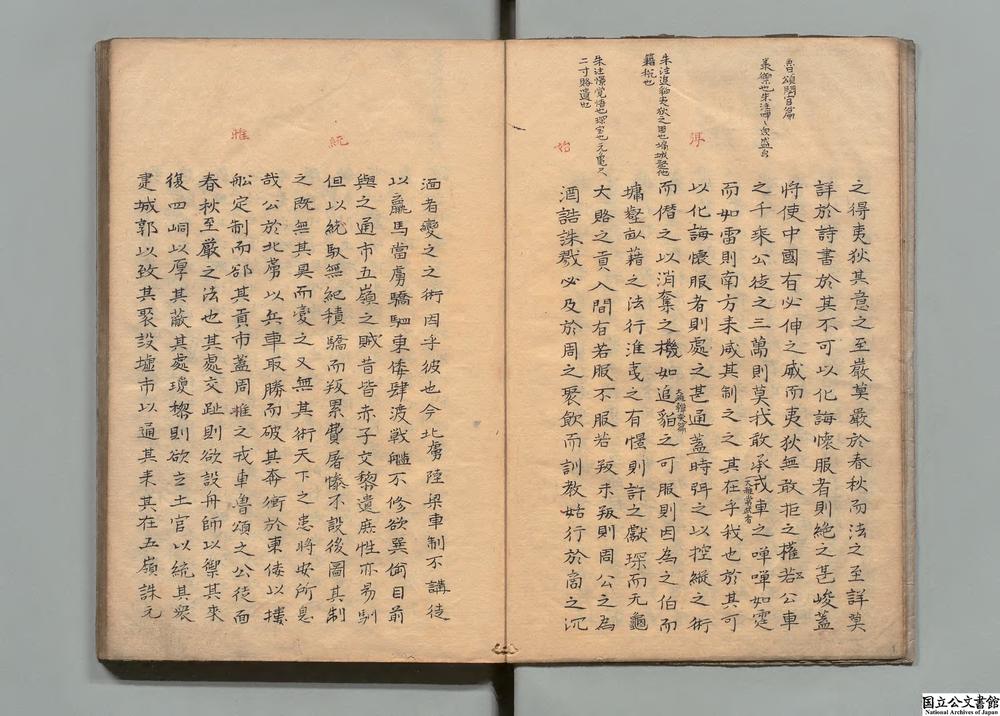 魯頌閟宮篇
朱注追貊夷狄之國也墉城壑池
籍税也
朱注憬覺悟也琛宝也元龜尺
二寸賂遺也
之得夷狄其意之至嚴莫嚴於春秋而法之至詳莫
詳於詩書於其不可以化誨懷服者則絶之甚峻蓋
將使中國有必伸之威而夷狄無敢拒之權若公車
之千乘公徒之三萬則莫我敢承戎車之嘽嘽如霆
而如雷則南方来威其制之之其在乎我也於其可
以化誨懷服者則處之甚通蓋時弭之以控縱之術
而僭之以消奪之機如追貊之可服則因為之伯而
墉壑畝藉之法行淮夷之有憬則許之獻琛而元龜
大賂之貢入間有若服不服若叛未叛則周公之為
酒誥誅戮必及於周之聚飲而訓教姑行於商之沉
湎者變之之術因乎彼也今北虜陸梁車制不講徒
以羸馬當虜驕駟東倭肆渡戦艦不修欲異偷目前
與之通市五嶺之賊昔皆赤子文黎遺庶性亦易馴
但以統馭無紀積驕而叛累費屠慘不設後圖其制
之既無其具而變之又無其術天下之患將安所息
哉公於北虜以兵車取勝而破其奔衝於東倭以樓
船定制而郤其貢市蓋周雅之戎車魯頌之公徒而
春秋至嚴之法也其處交趾則欲設舟師以禦其來
復四峒以厚其蔽其處瓊黎則欲立土官以統其衆
建城郭以致其聚設墟市以通其来其在五嶺誅元
得
始
統
雅
国立公文書館
National Archives of Japan